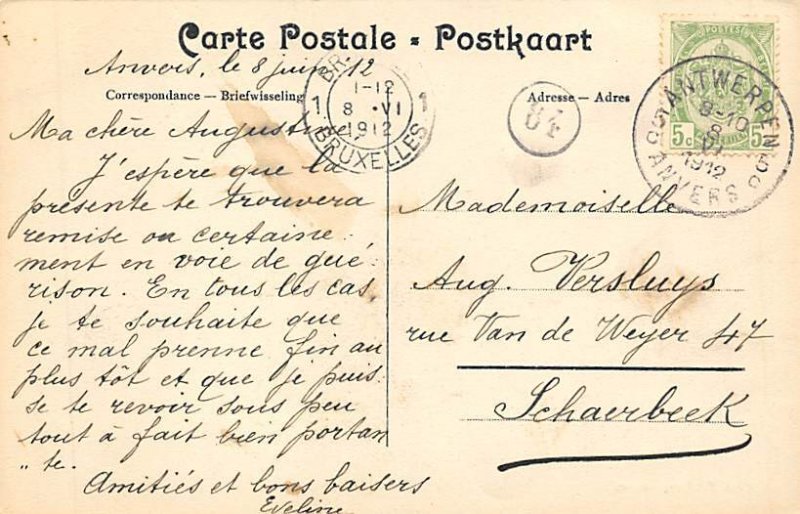 Carte Postale = Postkaart
Anvers, le 8 juin 12
Correspondance — Briefwisseling
Adresse — Adres
Ma chère Augustine,
J'espère que la
présente te trouvera
remise ou certaine
ment en voie de gué
rison. En tous les cas,
je te souhaite que
ce mal prenne fin au
plus tôt et que je puis
se te revoir sous peu
tout à fait bien portan
"te.
Amitiés et bons baisers
Eveline
Mademoiselle
Aug. Versluys
rue Van de Weyer 47
Schaerbeek
1-12
1 8 VI 1
1912
BRUXELLES
84
POSTES
5c
5c
ANTWERPEN 5
8-10
8
VI
1912
ANVERS